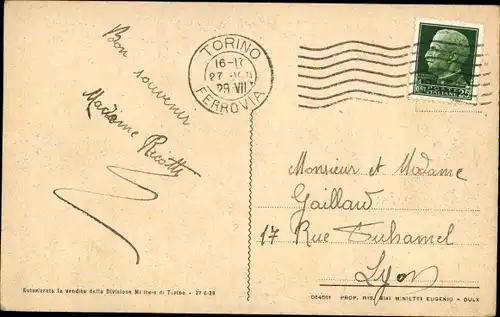 Bon souvenir
Madame
TORINO
16-17
27
29 VII
FERROVIA
POSTE
ITALIANE
25
Monsieur et Madame
Gaillard
17 Rue Duhamel
Lyon
Autorizzata la vendita dalla Divisione Militare di Torino - 27-6-29
PROP. RIS. MINIETTI EUGENIO - OULX